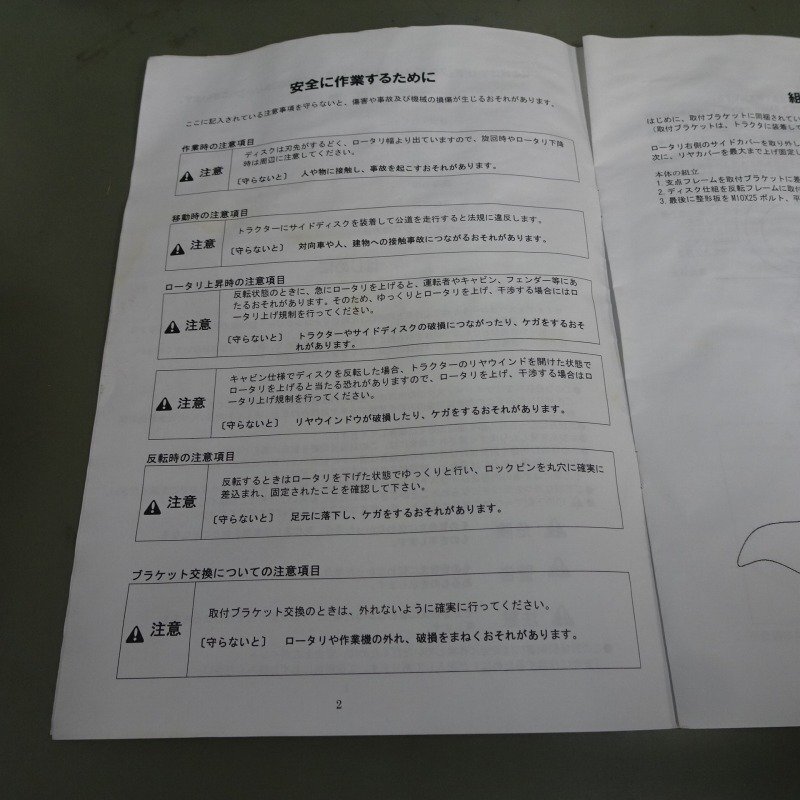 安全に作業するために
ここに記入されている注意事項を守らないと、傷害や事故及び機械の損傷が生じるおそれがあります。
作業時の注意項目
注意
ディスクは刃先がするどく、ロータリ幅より出ていますので、旋回時やロータリ下降
時は周辺に注意してください。
〔守らないと〕 人や物に接触し、事故を起こすおそれがあります。
移動時の注意項目
注意
トラクターにサイドディスクを装着して公道を走行すると法規に違反します。
〔守らないと〕 対向車や人、建物への接触事故につながるおそれがあります。
ロータリ上昇時の注意項目
注意
反転状態のときに、急にロータリを上げると、運転者やキャビン、フェンダー等にあ
たるおそれがあります。そのため、ゆっくりとロータリを上げ、干渉する場合にはロ
ータリ上げ規制を行ってください。
〔守らないと〕 トラクターやサイドディスクの破損につながったり、ケガをするおそ
れがあります。
注意
キャビン仕様でディスクを反転した場合、トラクターのリヤウインドを開けた状態で
ロータリを上げると当たる恐れがありますので、ロータリを上げ、干渉する場合はロ
ータリ上げ規制を行ってください。
〔守らないと〕 リヤウインドウが破損したり、ケガをするおそれがあります。
反転時の注意項目
注意
反転するときはロータリを下げた状態でゆっくりと行い、ロックピンを丸穴に確実に
差込まれ、固定されたことを確認して下さい。
〔守らないと〕 足元に落下し、ケガをするおそれがあります。
ブラケット交換についての注意項目
注意
取付ブラケット交換のときは、外れないように確実に行ってください。
〔守らないと〕 ロータリや作業機の外れ、破損をまねくおそれがあります。
2
組
はじめに、取付ブラケットに同梱されてい
（取付ブラケットは、トラクタに装着して
ロータリ右側のサイドカバーを取り外し
次に、リヤカバーを最大まで上げ固定し
本体の組立
1. 支点フレームを取付ブラケットに差
2. ディスク仕組を反転フレームに取付
3. 最後に整形板をM10X25ボルト、平